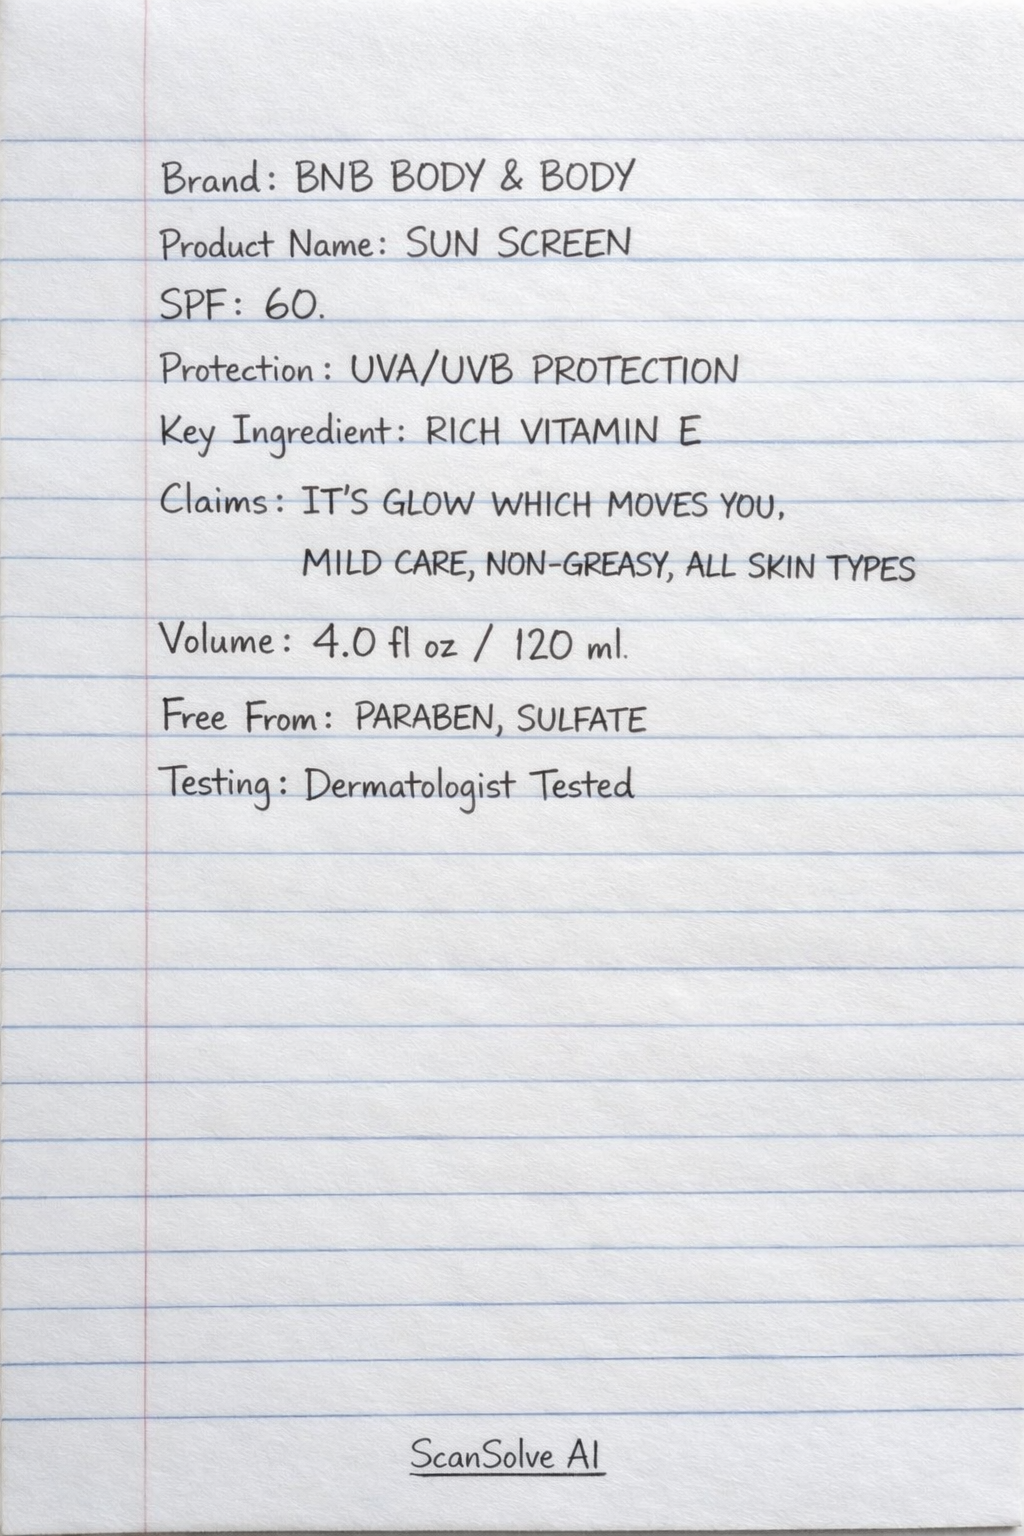 Brand: BNB BODY & BODY
Product Name: SUN SCREEN
SPF: 60.
Protection: UVA/UVB PROTECTION
Key Ingredient: RICH VITAMIN E
Claims: IT'S GLOW WHICH MOVES YOU,
MILD CARE, NON-GREASY, ALL SKIN TYPES
Volume: 4.0 fl oz / 120 ml.
Free From: PARABEN, SULFATE
Testing: Dermatologist Tested
ScanSolve AI